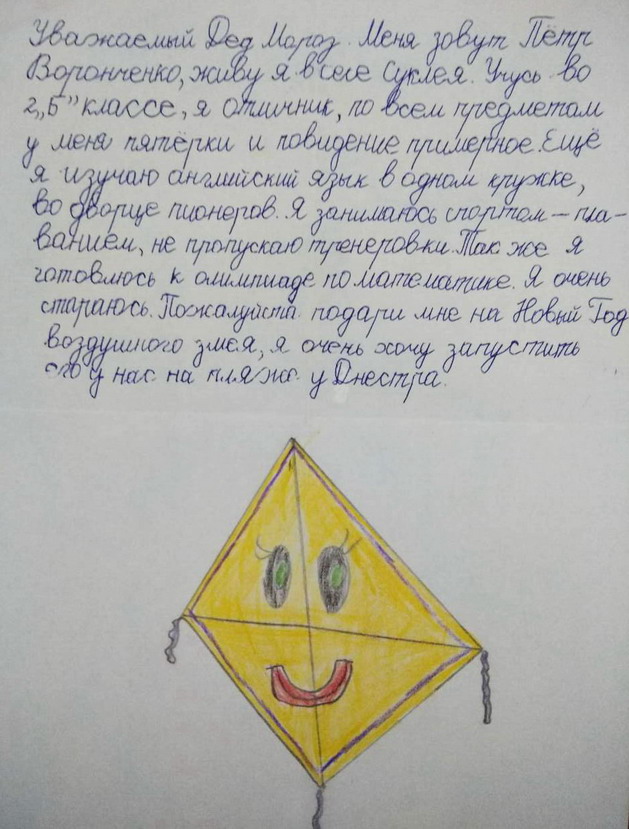 Уважаемый Дед Мороз. Меня зовут Пётр
Воронченко, живу я в селе Суклея. Учусь во
2 „Б" классе, я отличник, по всем предметам
у меня пятёрки и повидение примерное. Ещё
я изучаю английский язык в одном кружке,
во дворце пионеров. Я занимаюсь спортом – пла-
ванием, не пропускаю тренеровки. Так же я
готовлюсь к олимпиаде по математике. Я очень
стараюсь. Пожалуйста подари мне на Новый Год
воздушного змея, я очень хочу запустить
его у нас на пляже у Днестра.